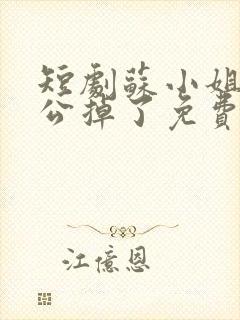 短劇蘇小姐
公掉了免費
江億恩